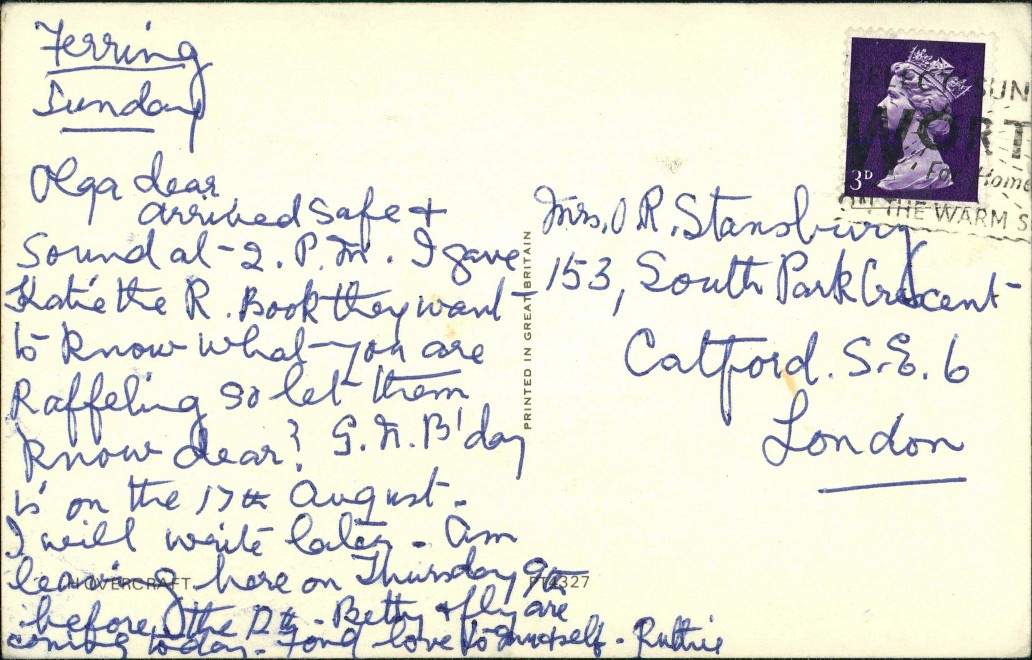 Ferring
Sunday
Olga dear
arrived safe +
Sound at 2. P.M. I gave
Katie the R. Book they want
to know what you are
Raffeling so let them
know dear? G.N. B'day
is on the 17th August.
I will write later. Am
leaving here on Thursday 9th
before the 12th. Betty & are
coming today. Fond love to yourself - Ruthie
HOVERCRAFT
PT4327
PRINTED IN GREAT BRITAIN
3D
SELECT SUN
WORT
For Home
ON THE WARM S
Mrs. O R. Stansbury
153, South Park Crescent
Catford. S.E. 6
London